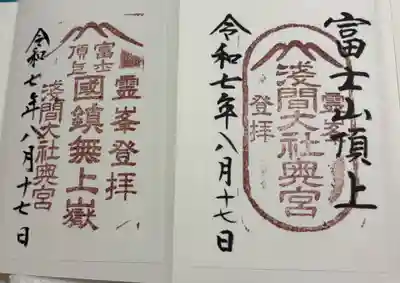 富士山頂上
霊峯
登拝
淺間大社奥宮
令和七年八月十七日
霊峯登拝
富士
頂上
國鎮無上嶽
淺間大社奥宮
令和七年八月十七日